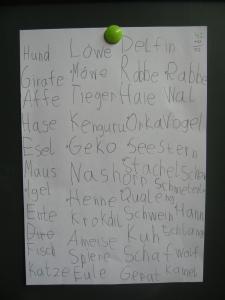 Hund Löwe Delfin
Girafe Möwe Robbe Rabbe
Affe Tieger Haie Wal
Hase Kenguru Orka Vogel
Esel Geko Seestern
Maus Nashorn Stachelschwein
Igel Henne Qualeng Schmeterling
Ente Krokdil Schwein Hann
Ameise Kuh Schlange
Fisch Spiene Schaf Wolf
Katze Eule Gepat Kamel